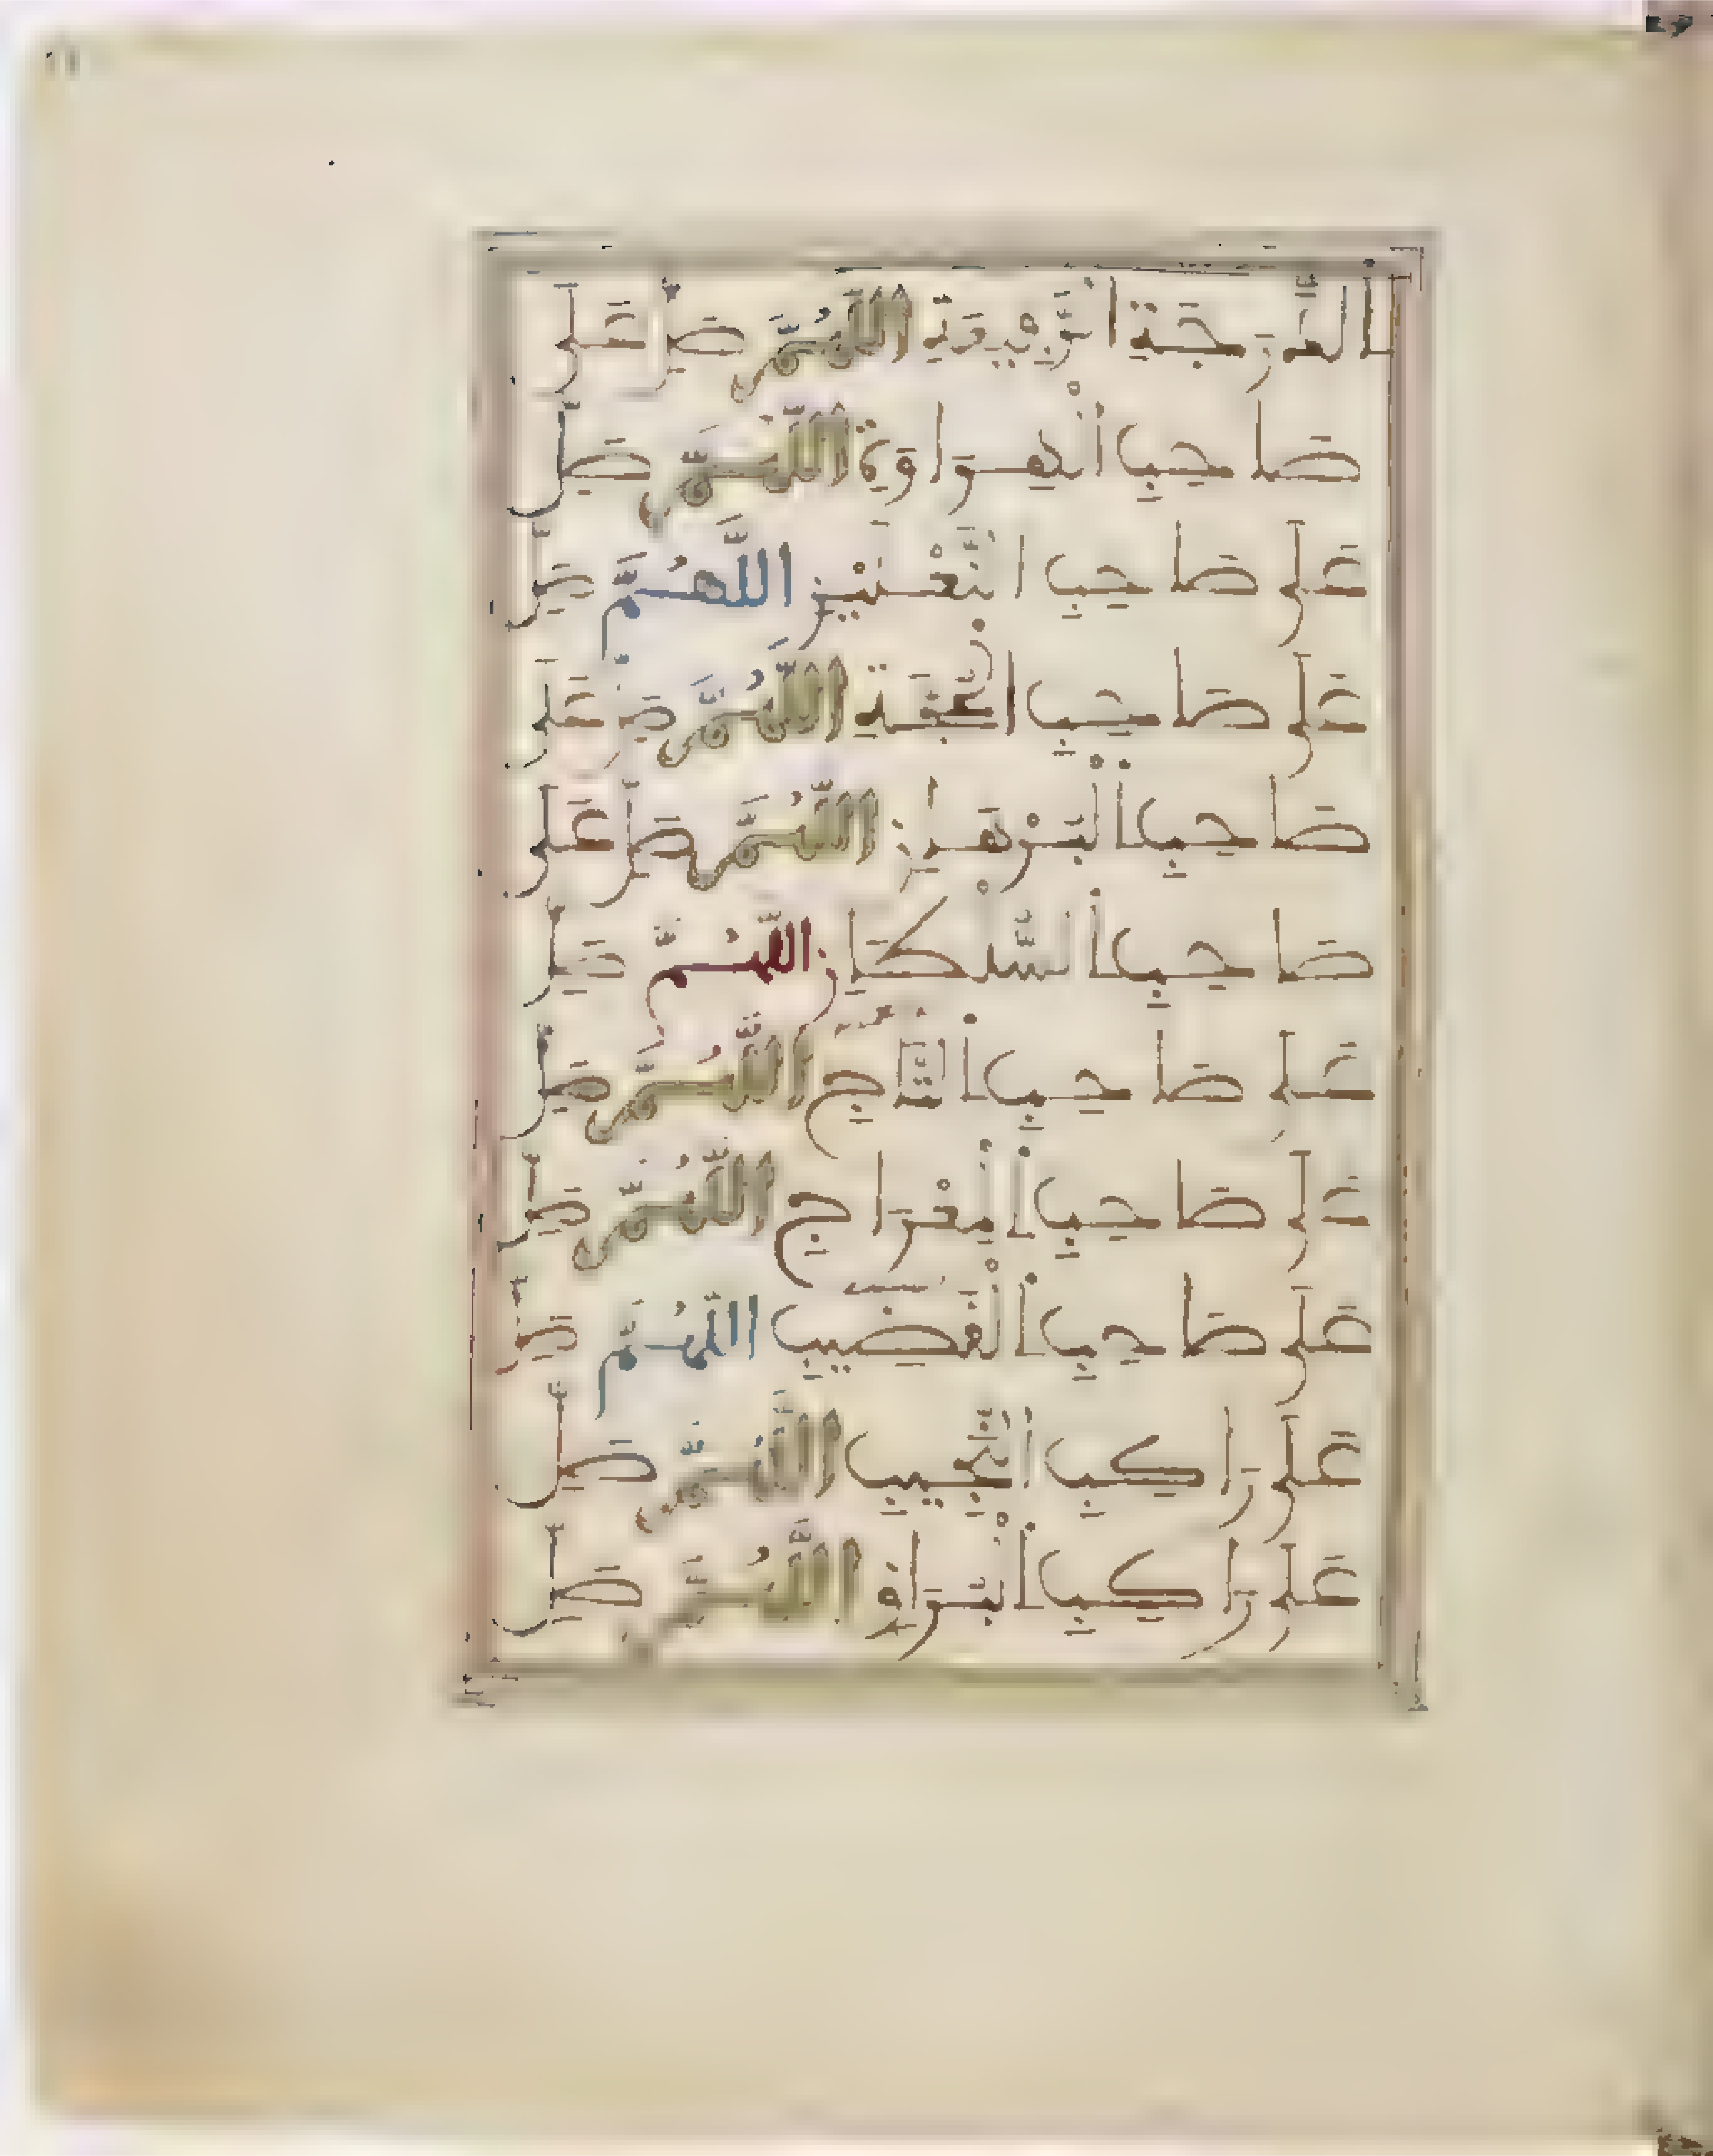 الدَّرَجَةِ الرَّفِيعَةِ اللَّهُمَّ صَلِّ عَلَى
صَاحِبِ الْهِرَاوَةِ اللَّهُمَّ صَلِّ
عَلَى صَاحِبِ النَّعْلَيْنِ اللَّهُمَّ صَلِّ
عَلَى صَاحِبِ الْحُجَّةِ اللَّهُمَّ صَلِّ عَلَى
صَاحِبِ الْبُرْهَانِ اللَّهُمَّ صَلِّ عَلَى
صَاحِبِ السُّلْطَانِ اللَّهُمَّ صَلِّ
عَلَى صَاحِبِ التَّاجِ اللَّهُمَّ صَلِّ
عَلَى صَاحِبِ الْمِعْرَاجِ اللَّهُمَّ صَلِّ
عَلَى صَاحِبِ الْقَضِيبِ اللَّهُمَّ صَلِّ
عَلَى رَاكِبِ النَّجِيبِ اللَّهُمَّ صَلِّ
عَلَى رَاكِبِ الْبُرَاقِ اللَّهُمَّ صَلِّ